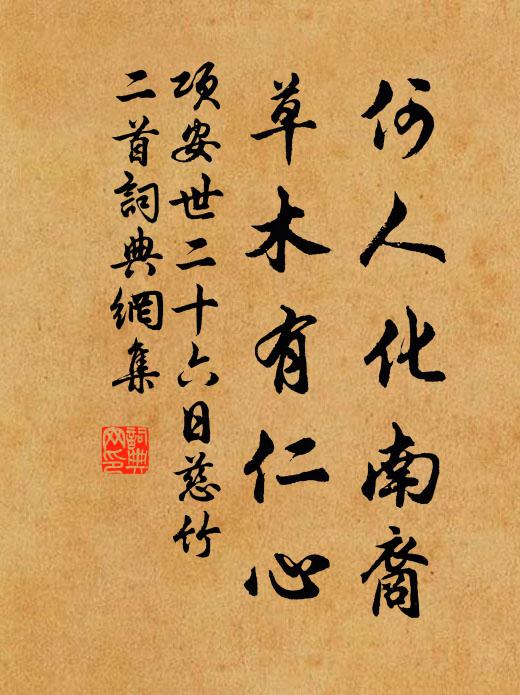 何人化南裔
草木有仁心
項安世二十六日慈竹
二首詞典網集
詞典
网印